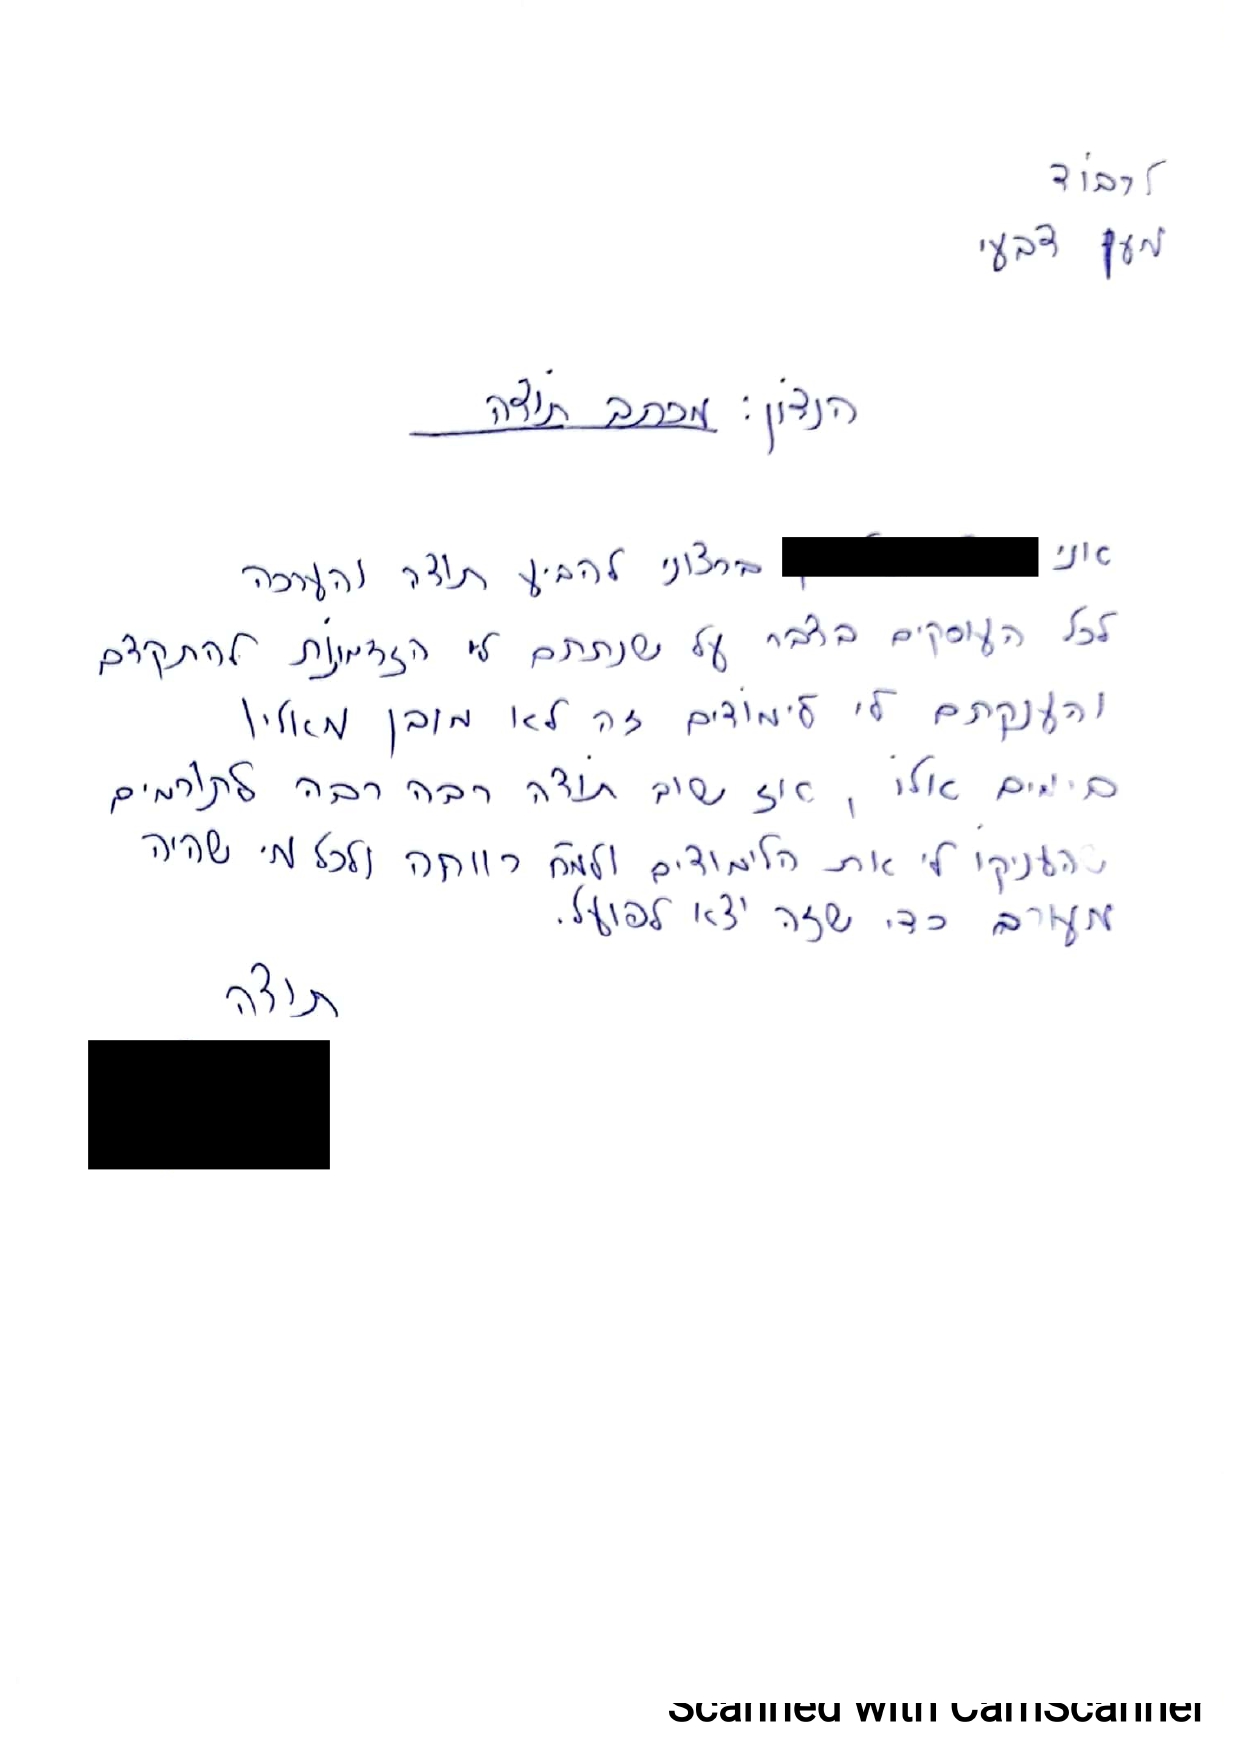 לכבוד
מען צבעי
הנדון: מכתב תודה
אוני ברצוני להביע תודה והערכה
לכל העוסקים בדבר על שנתתם לי הזדמנות להתקדם
והענקתם לי לימודים זה לא מובן מאליו
בימים אלו, אז שוב תודה רבה רבה לתורמים
שהעניקו לי את הלימודים ולמח רווחה ולכל מי שהיה
מעורב כדי שזה יצא לפועל.
תודה
Scanned with CamScanner